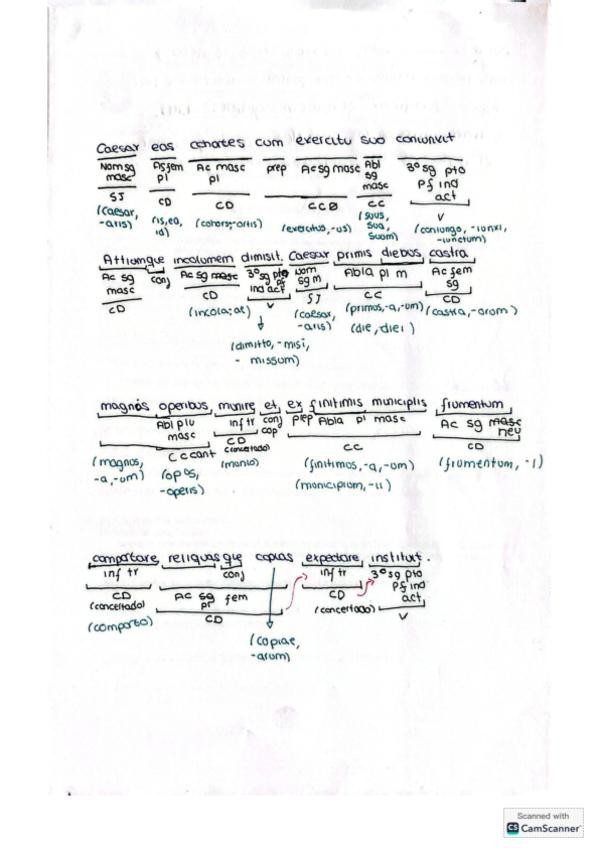 Caesar eos cohortes cum exercitu suo coniunxit
Nom sg masc Ac fem pl Ac masc pl prep Ac sg masc Abl sg masc 3º sg pto Pf ind act
SJ CD CD CC CC V
(caesar, -aris) (is, ea, id) (cohors, -ortis) (exercitus, -us) (suus, sua, suum) (coniungo, -iunxi, -iunctum)
Attiumque incolumem dimisit. Caesar primis diebus castra
Ac sg masc conj Ac sg masc 3º sg pto pf ind act Nom sg m Abla pl m Ac fem sg
CD CD V SJ CC CD
(incola, ae) (caesar, -aris) (primus, -a, -um) (castra, -arum)
(die, diei)
(dimitto, -misi, - missum)
magnis operibus, munire et, ex finitimis municipiis frumentum
Abl plu masc inf tr conj cop prep Abla pl masc Ac sg masc neu
CC cant CD (concertado) CC CD
(magnus, -a, -um) (opus, -operis) (munio) (finitimus, -a, -um) (frumentum, -i)
(municipium, -ii)
comportare, reliquasque copias expectare, instituit.
inf tr conj inf tr 3º sg pto Pf ind act
CD (concertado) Ac sg pl fem CD (concertado) V
(comporto) CD
(copiae, -arum)
Scanned with
CS CamScanner